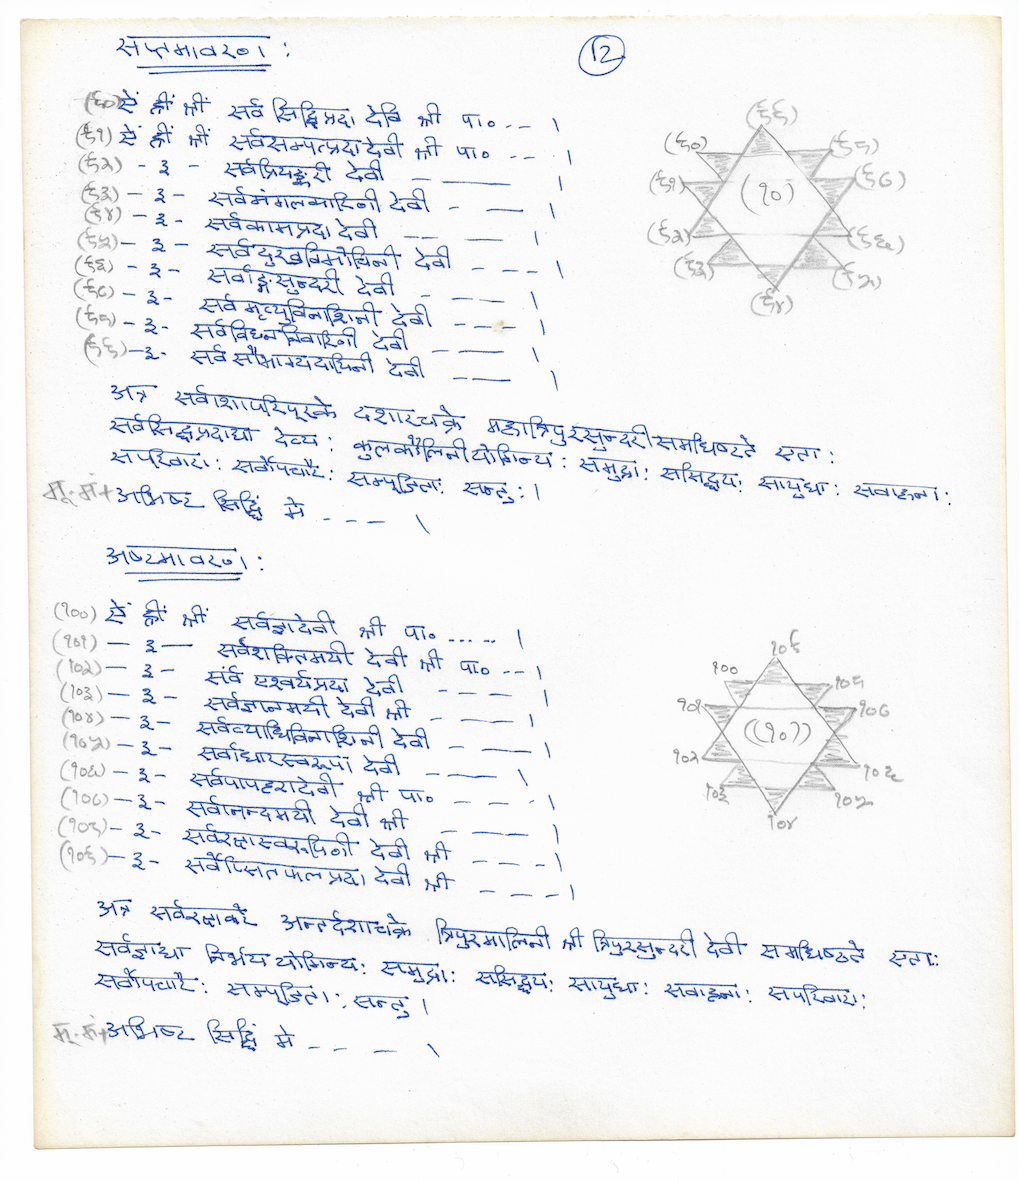 सप्तमावरण :
१२
(९०) ऐं ह्रीं श्रीं सर्व सिद्धिप्रदा देवि श्री पा० -- ।
(९१) ऐं ह्रीं श्रीं सर्वसम्पत्प्रदा देवी श्री पा० -- ।
(९२) - ३ - सर्वप्रियङ्करी देवी - —— ।
(९३) - ३ - सर्वमंगलकारिणी देवी - —— ।
(९४) - ३ - सर्वकामप्रदा देवी -- — — ।
(९५) - ३ - सर्वदुःखविमोचिनी देवी - - - ।
(९६) - ३ - सर्वाङ्गसुन्दरी देवी - - — — ।
(९७) - ३ - सर्वमृत्युविनाशिनी देवी - - - ।
(९८) - ३ - सर्वविघ्ननिवारिणी देवी - —— ।
(९९) - ३ - सर्व सौभाग्यदायिनी देवी —— ।
(९९)
(९०)
(९८)
(९१)
(१०)
(९७)
(९२)
(९६)
(९३)
(९५)
(९४)
अत्र सर्वाशापरिपूरके दशारचक्रे महात्रिपुरसुन्दरी समधिष्टते एता :
सर्वसिद्धप्रदाद्या देव्य : कुलकौलिनी योगिन्य : समुद्रा : ससिद्धय : सायुधा : सवाहना :
सपरिवारा : सर्वोपचारै : सम्पूजिता : सन्तु : ।
मू.मं+ अभिष्ट सिद्धिं मे - - - - ।
अष्टमावरण :
(१००) ऐं ह्रीं श्रीं सर्वज्ञादेवी श्री पा० ..... ।
(१०१) — ३ — सर्वशक्तिमयी देवी श्री पा० -- ।
(१०२) — ३ - सर्व एश्वर्यप्रदा देवी - - - - ।
(१०३) — ३ - सर्वज्ञानमयी देवी श्री - — — ।
(१०४) — ३ - सर्वव्याधिविनाशिनी देवी - —— ।
(१०५) — ३ - सर्वाधारस्वरूपा देवी - —— ।
(१०६) — ३ - सर्वपापहरादेवी श्री पा० - - - ।
(१०७) — ३ - सर्वानन्दमयी देवी श्री - —— ।
(१०८) - ३ - सर्वरक्षास्वरूपिणी देवी श्री - - - - ।
(१०९) - ३ - सर्वेप्सितफलप्रदा देवी श्री - - - - ।
१०९
१००
१०८
१०१
१०७
((१०))
१०२
१०६
१०३
१०५
१०४
अत्र सर्वरक्षाकरे अन्तर्दशाचक्रे त्रिपुरमालिनी श्री त्रिपुरसुन्दरी देवी समधिष्टते एता :
सर्वज्ञाद्या निर्भय योगिन्य : समुद्रा : ससिद्धय : सायुधा : सवाहना : सपरिवारा :
सर्वोपचारै : सम्पूजिता : सन्तु ।
मू.मं+ अभिष्ट सिद्धिं मे - - - - ।